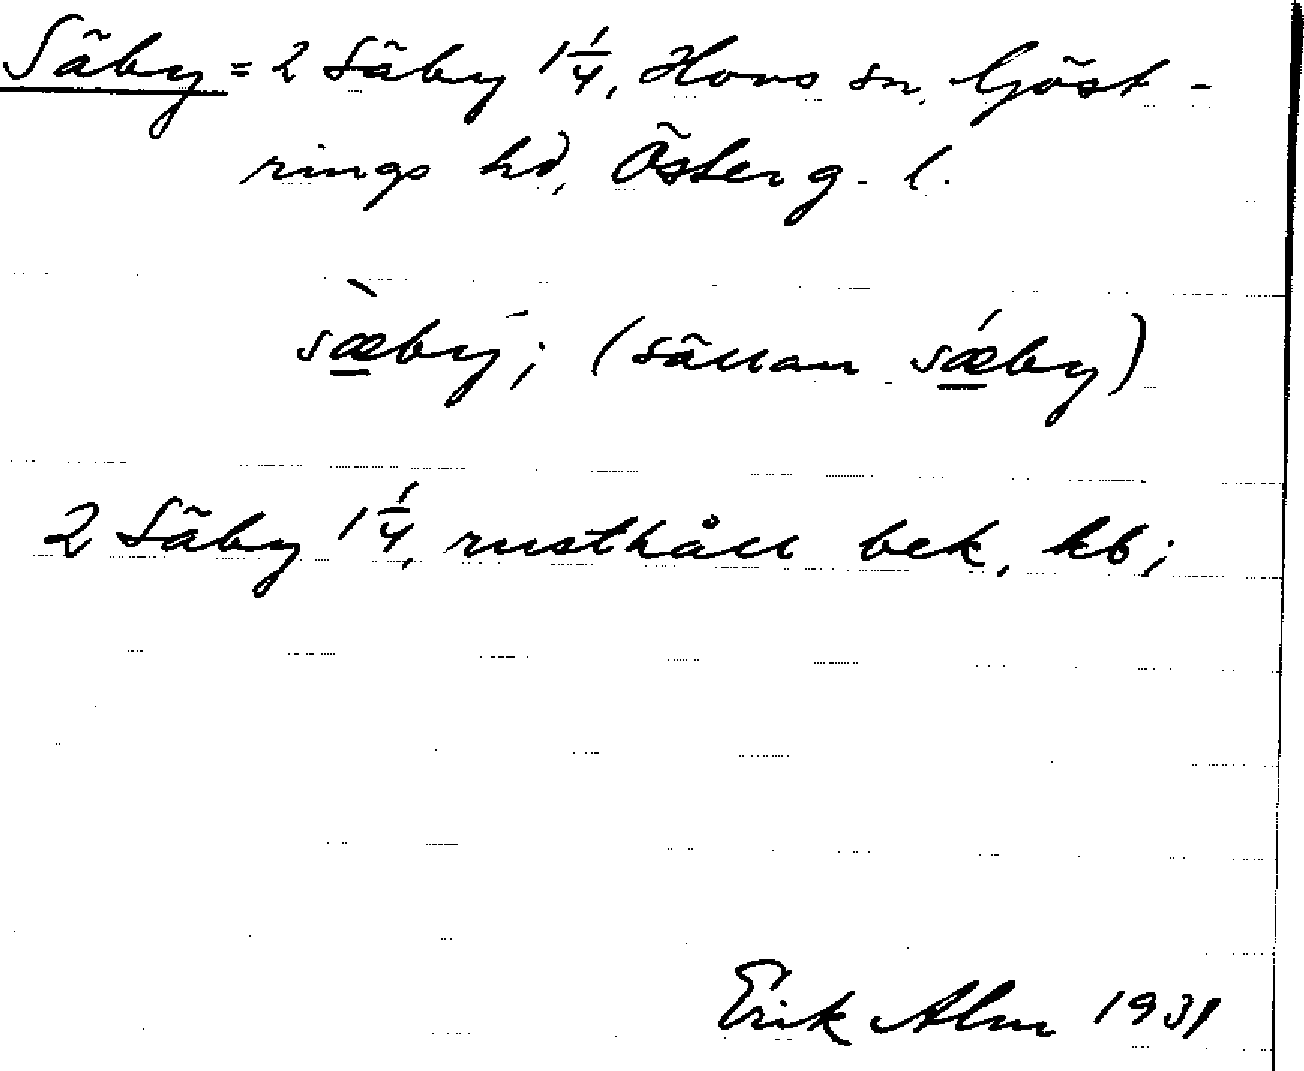 Säby = 2 Säby 1 1/4, Hovs sn, Göst-
rings hd, Österg. l.
sæ̀bý; (sällan sǽby)
2 Säby 1 1/4, rusthåll bek, kb;
Erik Alm 1931